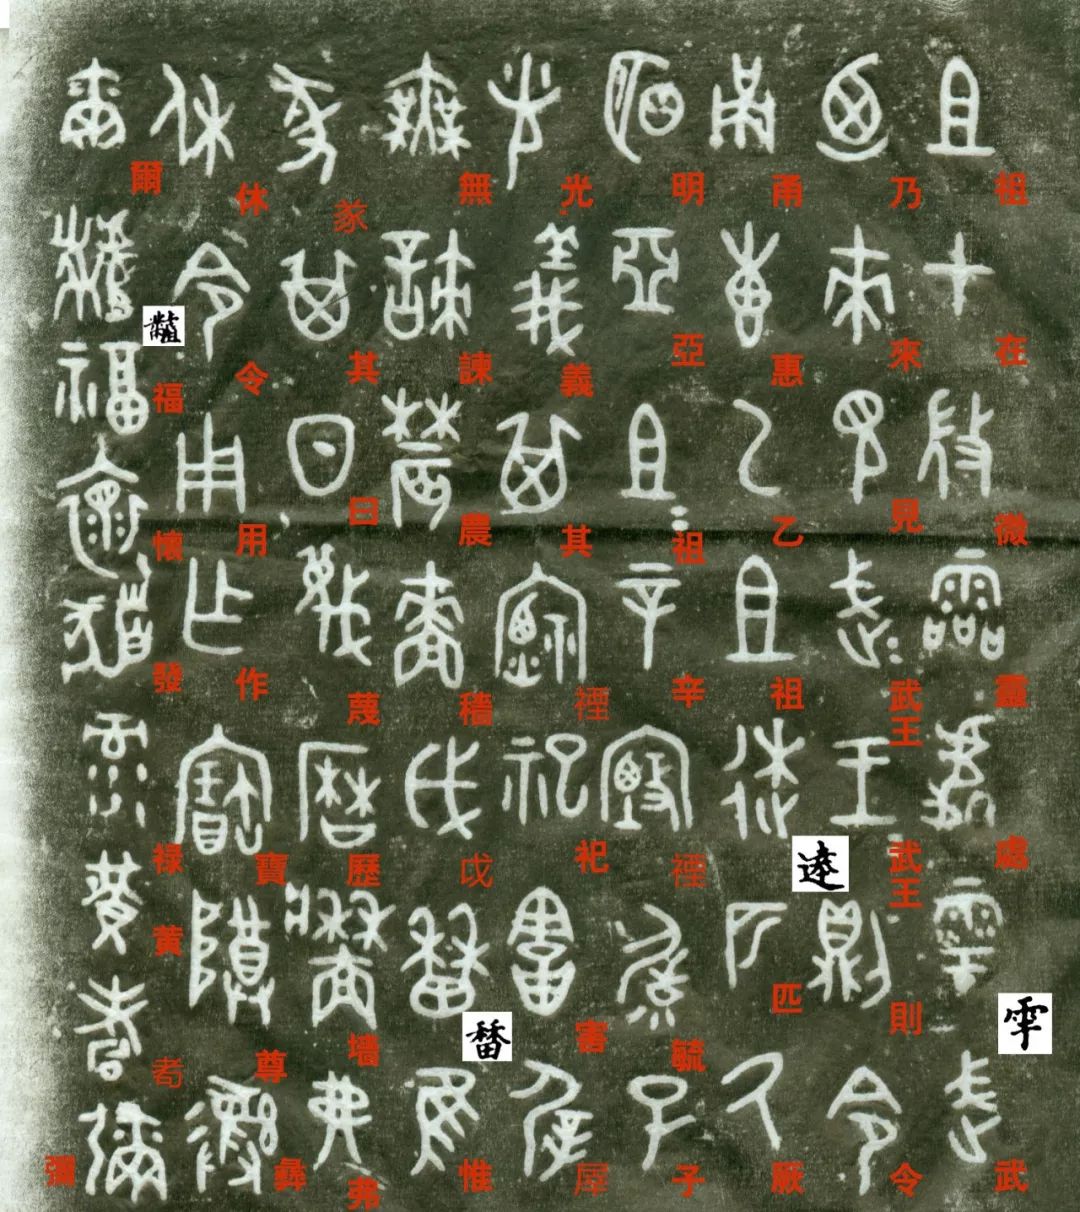 祖在微靈處雩武
乃來見武王武王則令
甬惠乙祖逨匹厥
明亞祖辛禋毓子
光義其禋祀害屖
無諫農穡戉惟
㒸其曰蔑歷墙弗
休令用作寶尊彝
爾福懷發禄黄耇彌